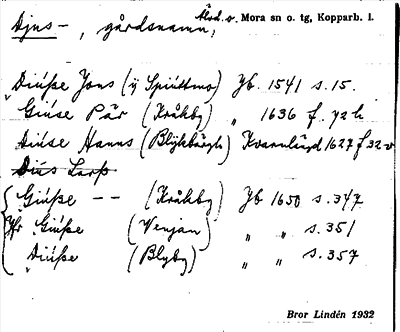 Djus-, gårdsnamn, Älvd. o. Mora sn o. tg, Kopparb. l.
Diússe Jons (ij Spiúttmo) Jb. 1541 s. 15.
Giúse Pär (Kråkby) " 1636 f. 72 b
Diúse Hanns (Blÿkbärgh) Kvarnlängd 1627 f 32 v
Diús Larss
Giússe -- (Kråkby) Jb 1650 s. 347
Jfr Giússe (Venjan) " " s. 351
Diússe (Blyby) " " s. 357
Bror Lindén 1932